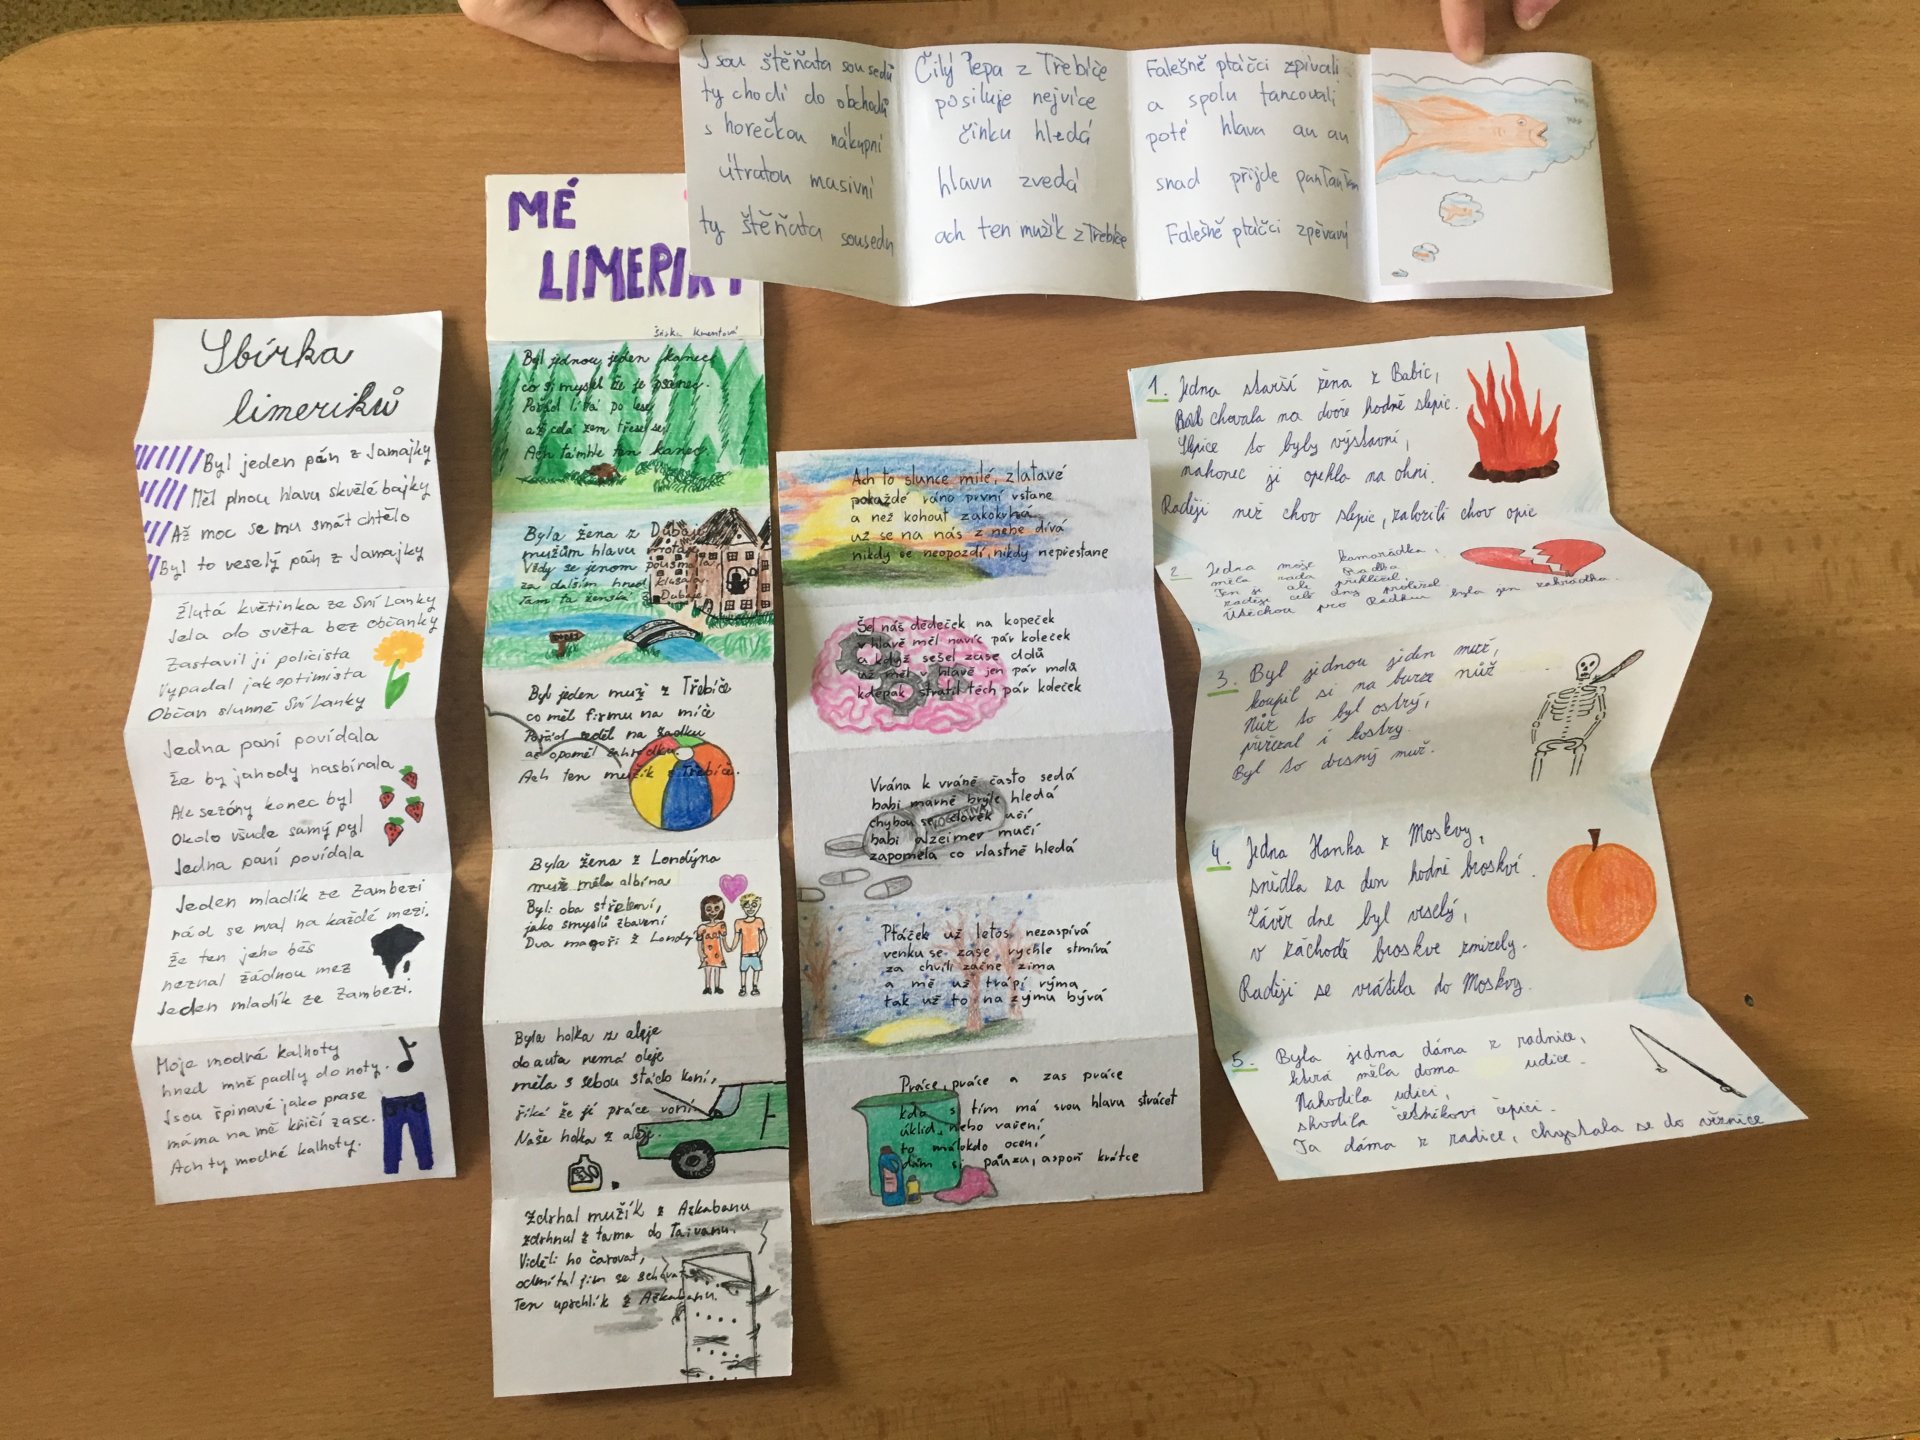 Sbírka
limeriků
Byl jeden pán z Jamajky
Měl plnou hlavu skvělé bajky
Až moc se mu smát chtělo
Byl to veselý pán z Jamajky
Žlutá květinka ze Srí Lanky
Jela do světa bez občanky
Zastavil ji policista
Vypadal jak optimista
Občan slunné Srí Lanky
Jedna paní povídala
že by jahody nasbírala
Ale sezóny konec byl
Okolo všude samý pyl
Jedna paní povídala
Jeden mladík ze Zambezi
rád se mal na každé mezi.
Že ten jeho běs
neznal žádnou mez
Jeden mladík ze Zambezi.
Moje modné kalhoty
hned mně padly do noty.
Jsou špinavé jako prase
máma na mě křičí zase.
Ach ty modné kalhoty.
MÉ
LIMERIKY
Byl jednou jeden kanec
co si myslel že je psanec.
Pořád lítá po lese
až celá zem třese se
Ach tamhle ten kanec
Byla žena z Dubaje
mužům hlavu motala
Vždy se jenom pousmála
za dalším hned klusala
Tam ta ženská z Dubaje
Byl jeden muž z Třebíče
co měl firmu na míče
Pořád seděl na zadku
až opoměl zahrádku.
Ach ten mužík z Třebíče.
Byla žena z Londýna
muže měla albína
Byli oba střelení,
jako smyslů zbavení
Dva magoři z Londýna
Byla holka z aleje
do auta nemá oleje
měla s sebou stádo koní,
říká že jí práce voní
Naše holka z aleje.
Zdrhal mužík z Azkabanu
zdrhnul z tama do Taivanu.
Viděli ho čarovat,
odmítal jim se schovat
Ten uprchlík z Azkabanu.
Jsou štěňata sousedů
ty chodí do obchodů
s horečkou nákupní
útratou masivní
ty štěňata sousedů
Čilý Pepa z Třebíče
posiluje nejvíce
činku hledá
hlavu zvedá
ach ten mužík z Třebíče
Falešně ptáčci zpívali
a spolu tancovali
poté hlava au au
snad přijde pantantan
Falešně ptáčci zpěvavý
Ach to slunce milé, zlatavé
pokaždé ráno první vstane
a než kohout zakokrhá
už se na nás z nebe dívá
nikdy se neopozdí, nikdy nepřestane
Šel náš dědeček na kopeček
v hlavě měl navíc pár koleček
a když sešel zase dolů
už měl v hlavě jen pár molů
kdepak ztratil těch pár koleček
Vrána k vráně často sedá
babi marně brýle hledá
chybou se člověk učí
babi alzeimer mučí
zapoměla co vlastně hledá
Ptáček už letos nezaspívá
venku se zase rychle stmívá
za chvíli začne zima
a mě už trápí rýma
tak už to na zýmu bývá
Práce, práce a zas práce
kdo s tím má svou hlavu strácet
úklid, nebo vaření
to málokdo ocení
dám si pauzu, aspoň krátce
1. Jedna starší žena z Babic,
chovala na dvoře hodně slepic.
Slepice to byly výstavní,
nakonec ji opekla na ohni.
Raději než chov slepic, založili chov opic
2. Jedna moje kamarádka,
měla ráda Radka
Ten si ale
raději celé dny proležel
Útěchou pro Radku byla jen zahrádka.
3. Byl jednou jeden muž,
koupil si na burze nůž
Nůž to byl ostrý,
přiřezal i kostry.
Byl to drsný muž.
4. Jedna Hanka z Moskvy,
snědla za den hodně broskví.
Závěr dne byl veselý,
v záchodě broskve zmizely.
Raději se vrátila do Moskvy.
5. Byla jedna dáma z radnice,
která měla doma udice.
Nahodila udici,
shodila četníkovi čepici.
Ta dáma z radice, chystala se do věznice